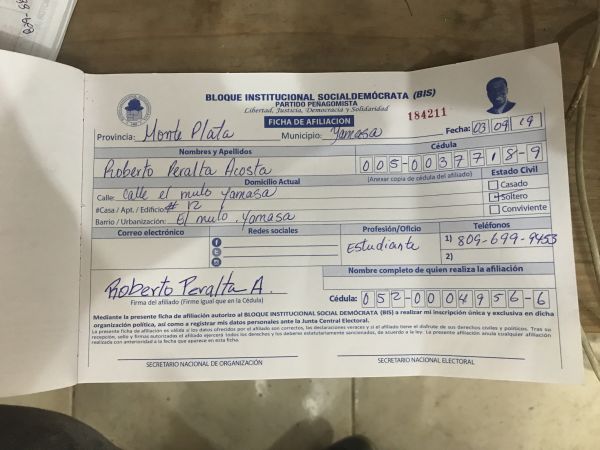 BLOQUE INSTITUCIONAL SOCIALDEMÓCRATA (BIS)
PARTIDO PEÑAGOMISTA
Libertad, Justicia, Democracia y Solidaridad
184211
FICHA DE AFILIACION
Provincia: Monte Plata Municipio: Yamasa Fecha: 03 09 19
Nombres y Apellidos Cédula
Roberto Peralta Acosta 005-0037718-9
Domicilio Actual (Annexar copia de cédula del afiliado) Estado Civil
Calle: Calle el mulo Yamasa Casado
#Casa / Apt. / Edificio: # 12 Soltero
Barrio / Urbanización: El mulo. Yamasa Conviviente
Correo electrónico Redes sociales Profesión/Oficio Teléfonos
Estudiante 1) 809-699-9453
2)
Nombre completo de quien realiza la afiliación
Roberto Peralta A.
Firma del afiliado (Firme igual que en la Cédula) Cédula: 052-0004956-6
Mediante la presente ficha de afiliación autorizo al BLOQUE INSTITUCIONAL SOCIAL DEMÓCRATA (BIS) a realizar mi inscripción única y exclusiva en dicha
organización política, así como a registrar mis datos personales ante la Junta Central Electoral.
La presente ficha de afiliación es válida si los datos ofrecidos por el afiliado son correctos, las declaraciones veraces y si el afiliado tiene el disfrute de sus derechos civiles y políticos. Tras su
recepción, sello y firmas autorizadas el afiliado ejercerá todos los derechos y deberes estatutariamente sancionados, de acuerdo a la ley. La presente afiliación anula cualquier afiliación
realizada con anterioridad a la fecha que aparece en esta ficha.
SECRETARIO NACIONAL DE ORGANIZACIÓN SECRETARIO NACIONAL ELECTORAL